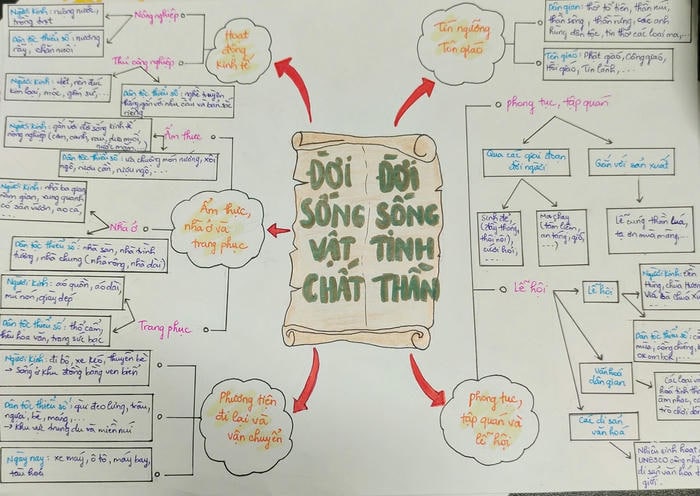 Người Kinh: ruộng nước,
trồng trọt
Nông nghiệp
Dân tộc thiểu số: nương
rẫy, chăn nuôi
Hoạt
động
kinh tế
Thủ công nghiệp
Người Kinh: dệt, rèn đúc
kim loại, mộc, gốm sứ,...
Dân tộc thiểu số: nghề truyền
thống gắn với nhu cầu và bản sắc
riêng
Người Kinh: gắn với đời sống kinh tế
nông nghiệp (cơm, canh, rau, dưa muối,
nước mắm...
Ẩm thực
Dân tộc thiểu số: ưa chuộng món nướng, xôi
ngô, rượu cần, rượu ngô,...
Người Kinh: nhà ba gian
năm gian, xung quanh
có sân vườn, ao cá,...
Nhà ở
Ẩm thực,
nhà ở và
trang phục
Dân tộc thiểu số: nhà sàn, nhà trình
tường, nhà chung (nhà rông, nhà dài)
Người Kinh: áo quần, áo dài,
mũ nón, giày dép
Dân tộc thiểu số: thổ cẩm,
thêu hoa văn, trang sức bạc
Trang phục
Người Kinh: đi bộ, xe kéo, thuyền bè
→ sống ở khu đồng bằng ven biển
Dân tộc thiểu số: gùi đeo lưng, trâu,
ngựa, bè, mảng,...
→ khu vực trung du và miền núi
Ngày nay: xe máy, ô tô, máy bay,
tàu hoả
Phương tiện
đi lại và
vận chuyển
ĐỜI
SỐNG
VẬT
CHẤT
ĐỜI
SỐNG
TINH
THẦN
Tín ngưỡng
Tôn giáo
Dân gian: thờ tổ tiên, thần núi,
thần sông, thần rừng, các anh
hùng dân tộc, tin thờ các loại ma,...
Tôn giáo: Phật giáo, Công giáo,
Hồi giáo, Tin Lành,...
phong tục, tập quán
Qua các giai đoạn
đời người
Gắn với sản xuất
Sinh đẻ,
(đầy tháng,
thôi nôi),
cưới hỏi,
Ma chay
(tắm liệm,
an táng, giỗ,
....)
Lễ cúng thần lúa,
tạ ơn mùa màng,...
Lễ hội
Lễ hội
Người Kinh: Đền
Hùng, chùa Hươ
Vía bà chúa x
Dân tộc thiểu số: c
mùa, cồng chiêng,
ok om bok,...
Văn hoá
dân gian
Các loại
hoá tinh th
ẩm thực, c
trò chơi d
Các di sản
văn hoá
Nhiều sinh hoạt
UNESCO công nh
di sản văn hoá t
giới.
phong tục,
tập quán và
lễ hội